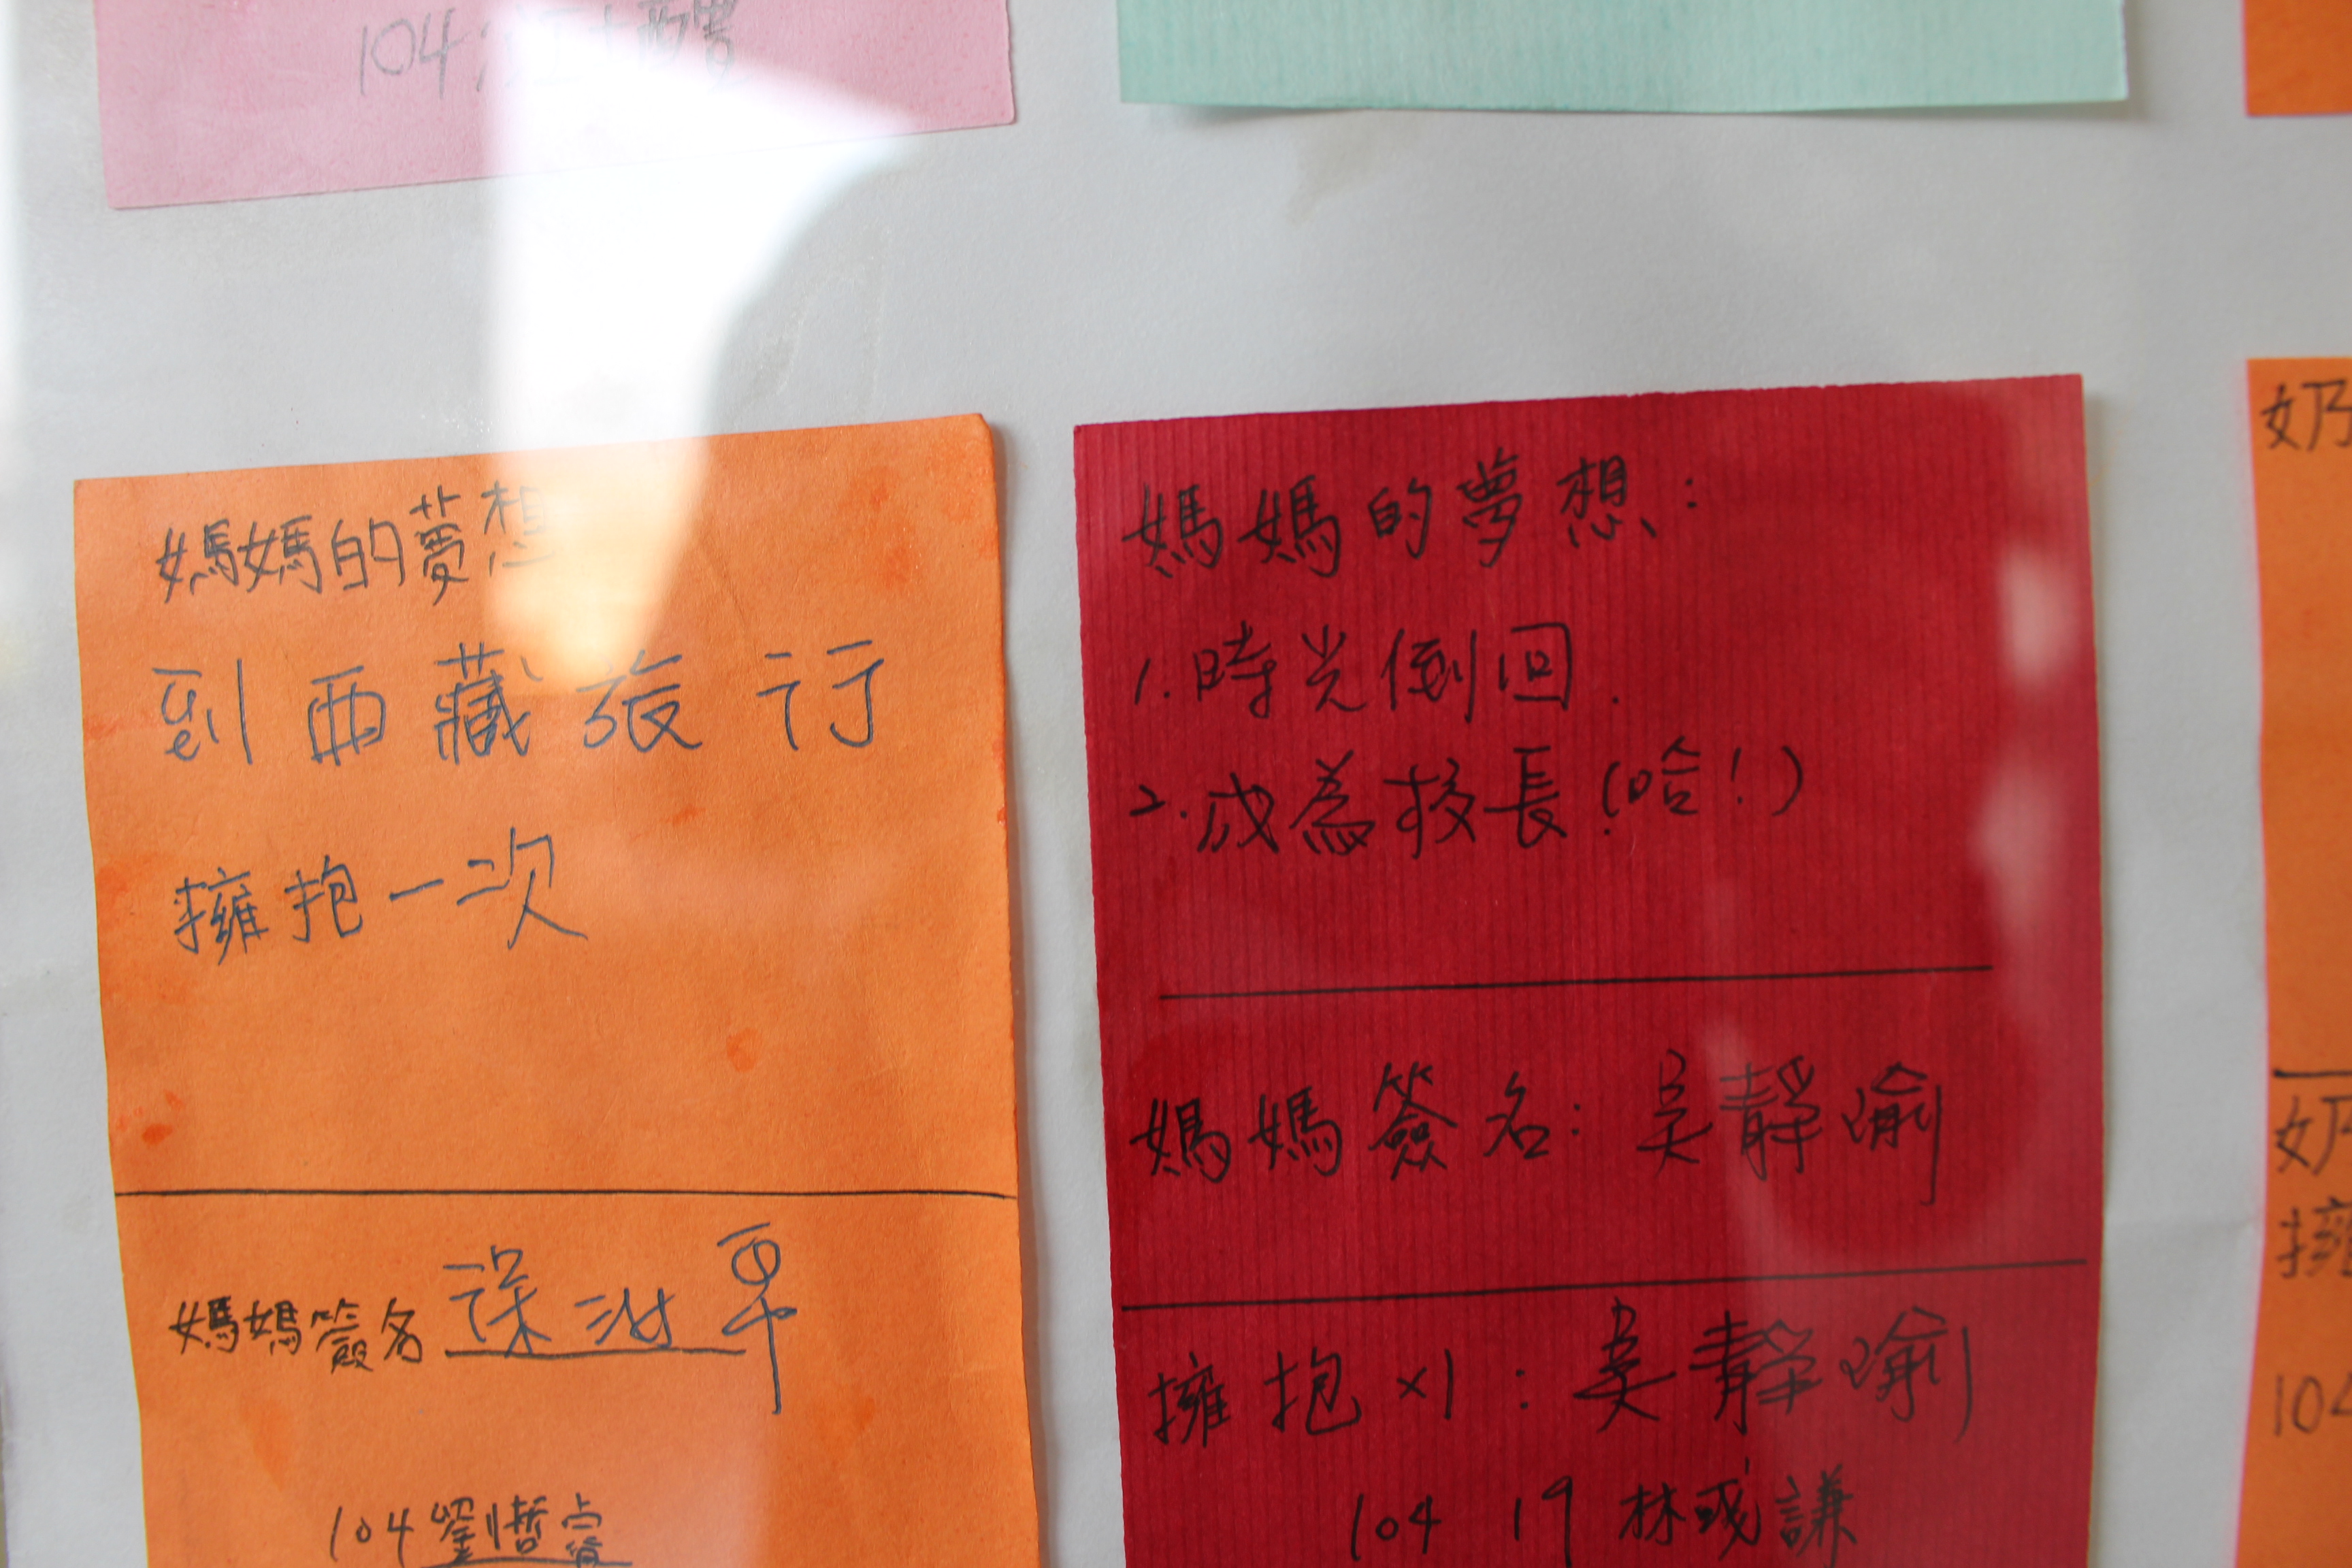 104
媽媽的夢想
到西藏旅行
擁抱一次
媽媽簽名
104 劉
媽媽的夢想：
1. 時光倒回.
2. 成為校長(哈！)
媽媽簽名：吳靜瑜
擁抱 x1：吳靜瑜
104 19 林彧謙
奶
奶
擁
104